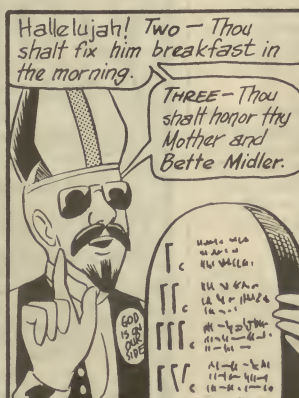 Hallelujah! Two — Thou
shalt fix him breakfast in
the morning.
THREE — Thou
shalt honor thy
Mother and
Bette Midler.
GOD
IS ON
OUR
SIDE
I.
II.
III.
IV.